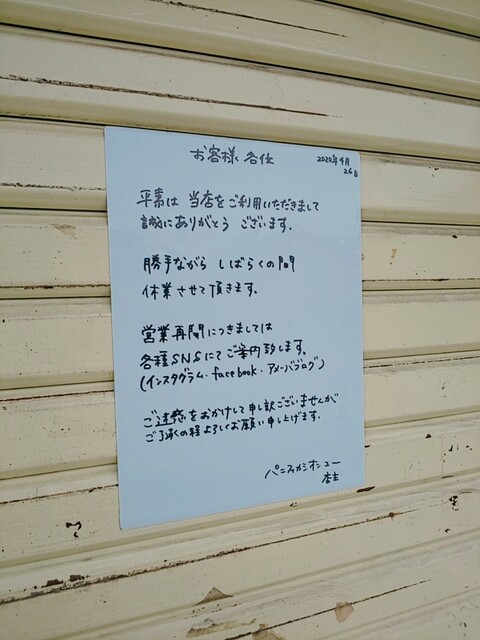 お客様 各位
2020年4月
26日
平素は 当店をご利用いただきまして
誠にありがとう ございます。
勝手ながら しばらくの間
休業させて頂きます。
営業再開につきましては
各種SNSにてご案内致します。
(インスタグラム・facebook・アメーバブログ)
ご迷惑をおかけして申し訳ございませんが
ご了承の程よろしくお願い申し上げます。
パニフィカシオンユー
店主